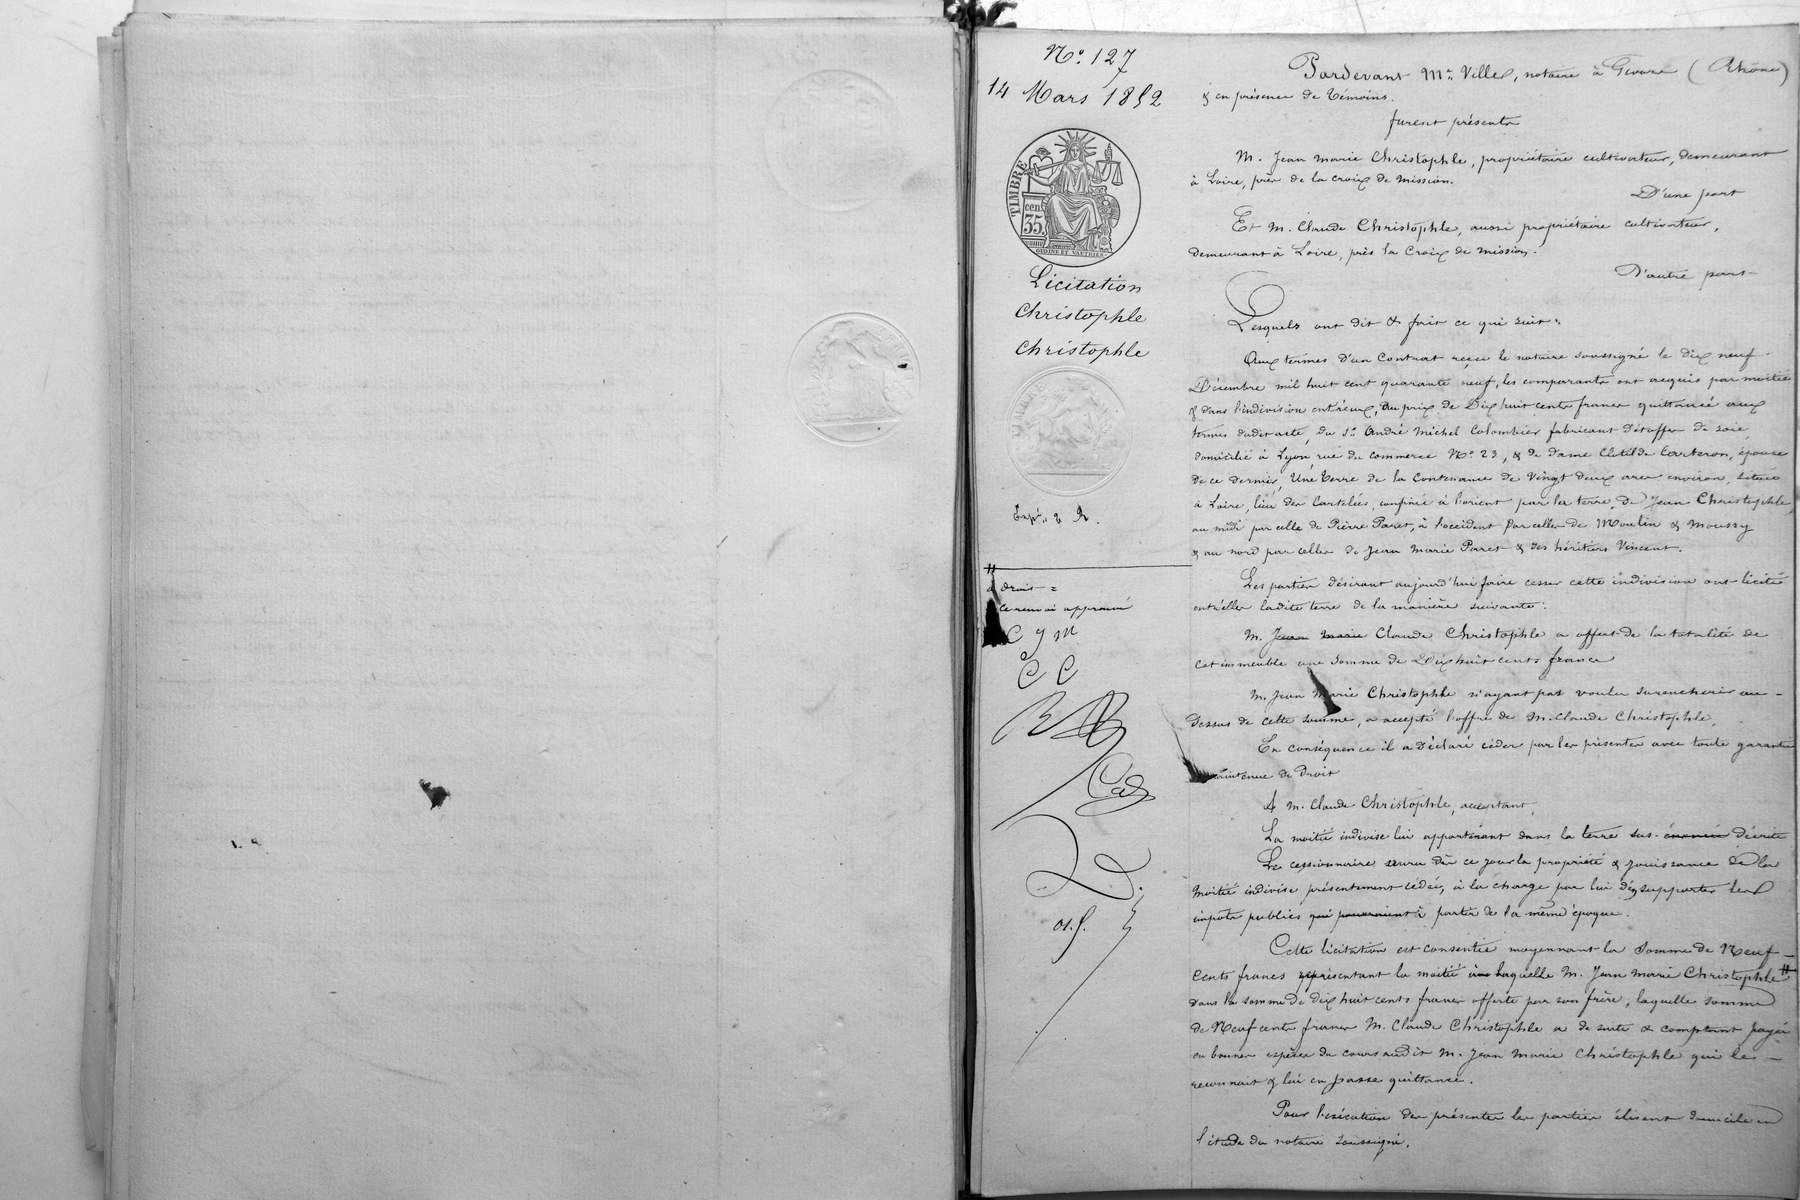 N° 127
14 Mars 1852
TIMBRE
cen.
35.
Licitation
Christophle
Christophle
a droit =
ce renvoi approuvé
C J M
C C
Pardevant Me Ville, notaire à Givors (Rhône)
& en présence de témoins.
furent présents
M. Jean Marie Christophle, propriétaire cultivateur, demeurant
à Loire, près de la croix de Mission.
D'une part
Et M. Claude Christophle, aussi propriétaire cultivateur,
demeurant à Loire, près la Croix de Mission.
D'autre part
Lesquels ont dit & fait ce qui suit :
Aux termes d'un Contrat reçu le notaire soussigné le Dix neuf
Décembre mil huit cent quarante neuf, les comparants ont acquis par moitié
& dans l'indivision entr'eux, au prix de Dix huit cents francs quittancé aux
termes dudit acte, du Sr André Michel Colombier fabricant d'étoffes de soie,
domicilié à Lyon rue du commerce N° 23, & de dame Clotilde Carteron, épouse
de ce dernier, Une terre de la Contenance de Vingt deux ares environ, située
à Loire, lieu des Cartelées, confinée à l'orient par les terres de Jean Christophle,
au midi par celle de Pierre Paret, à l'occident par celles de Moulin & Moussy
& au nord par celles de Jean Marie Paret & des héritiers Vincent.
Les parties désirant aujourd'hui faire cesser cette indivision ont licité
entr'elles ladite terre de la manière suivante :
M. Jean Marie Claude Christophle a offert de la totalité de
cet immeuble une somme de Dix huit cents francs
M. Jean Marie Christophle n'ayant pas voulu surenchérir au-
dessus de cette somme, a accepté l'offre de M. Claude Christophle.
En conséquence il a déclaré céder par les présentes avec toute garantie
maintenue de droit
A M. Claude Christophle, acceptant,
La moitié indivise lui appartenant dans la terre sus-énoncée décrite
Le cessionnaire aura dès ce jour la propriété & jouissance de la
moitié indivise présentement cédée, à la charge par lui d'en supporter les
impôts publics qui pourraient à partir de la même époque.
Cette licitation est consentie moyennant la somme de Neuf-
cents francs représentant la moitié à laquelle M. Jean Marie Christophle
dans la somme de dix huit cents francs offerte par son frère, laquelle somme
de Neuf cents francs M. Claude Christophle a de suite & comptant payée
en bonnes espèces du cours audit M. Jean Marie Christophle qui le
reconnait & lui en passe quittance.
Pour l'exécution des présentes les parties élisent domicile en
l'étude du notaire soussigné.